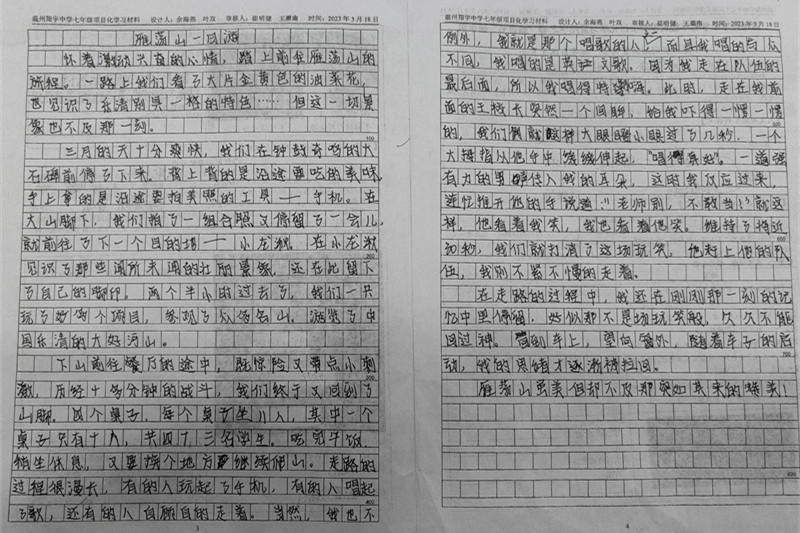 温州翔宇中学七年级项目化学习材料 设计人：余海燕 叶双 审核人：崔明健 王雁南 时间：2023年3月18日
雁荡山一日游
怀着激动兴奋的心情，踏上前往雁荡山的
旅程。一路上我们看了大片金黄色的油菜花，
也见识了乐清别具一格的特色……但这一切景
象也不及那一刻。
三月的天十分爽快，我们在钟鼓奇鸣的大
石碑前停了下来。背上背的是沿途要吃的美味，
手上拿的是沿途要拍美照的工具——手机。在
大山脚下，我们拍了一组合照又停留了一会儿，
就前往了下一个目的地——小龙湫。在小龙湫
见识了那些闻所未闻的壮丽景象，还在此留下
了自己的脚印。两个半小时过去了，我们一共
玩了好多个项目，参观了众多名山，游览了中
国乐清的大好河山。
下山前往餐厅的途中，既惊险又带点小刺
激，历经十多分钟的战斗，我们终于又回到了
山脚。四个桌子，每个桌子坐11人，其中一个
桌子只有十人，共四十三名学生。吃完午饭，
稍作休息，又要换个地方继续爬山。走路的
过程很漫长，有的人玩起了手机，有的人唱起
了歌，还有的人自顾自的走着。当然，我也不
3
温州翔宇中学七年级项目化学习材料 设计人：余海燕 叶双 审核人：崔明健 王雁南 时间：2023年3月18日
例外，我就是那个唱歌的人，而且我唱的与众
不同，我唱的是英语文歌。因为我走在队伍的
最后面，所以我唱得特嗨。此时，走在我前
面的王校长突然一个回眸，给我吓得一愣一愣
的，我们就这样大眼瞪小眼过了几秒，一个
大拇指从他手中缓缓伸起，“唱得真好。”一道强
有力的男声传入我的耳朵，这时我反应过来，
连忙推开他的手说道：“老师别，不敢当！”就这
样，他看着我笑，我也看着他笑。维持了将近
30秒，我们就打消了这场玩笑，他赶上他的队
伍，我则不紧不慢的走着。
在走路的过程中，我还在刚刚那一刻的记
忆中里停留，好似那不是场玩笑般，久久不能
回过神。直到车上，望向窗外，随着车子的启
动，我的思绪才逐渐被拉回。
雁荡山虽美但却不及那突如其来的赞美！
4